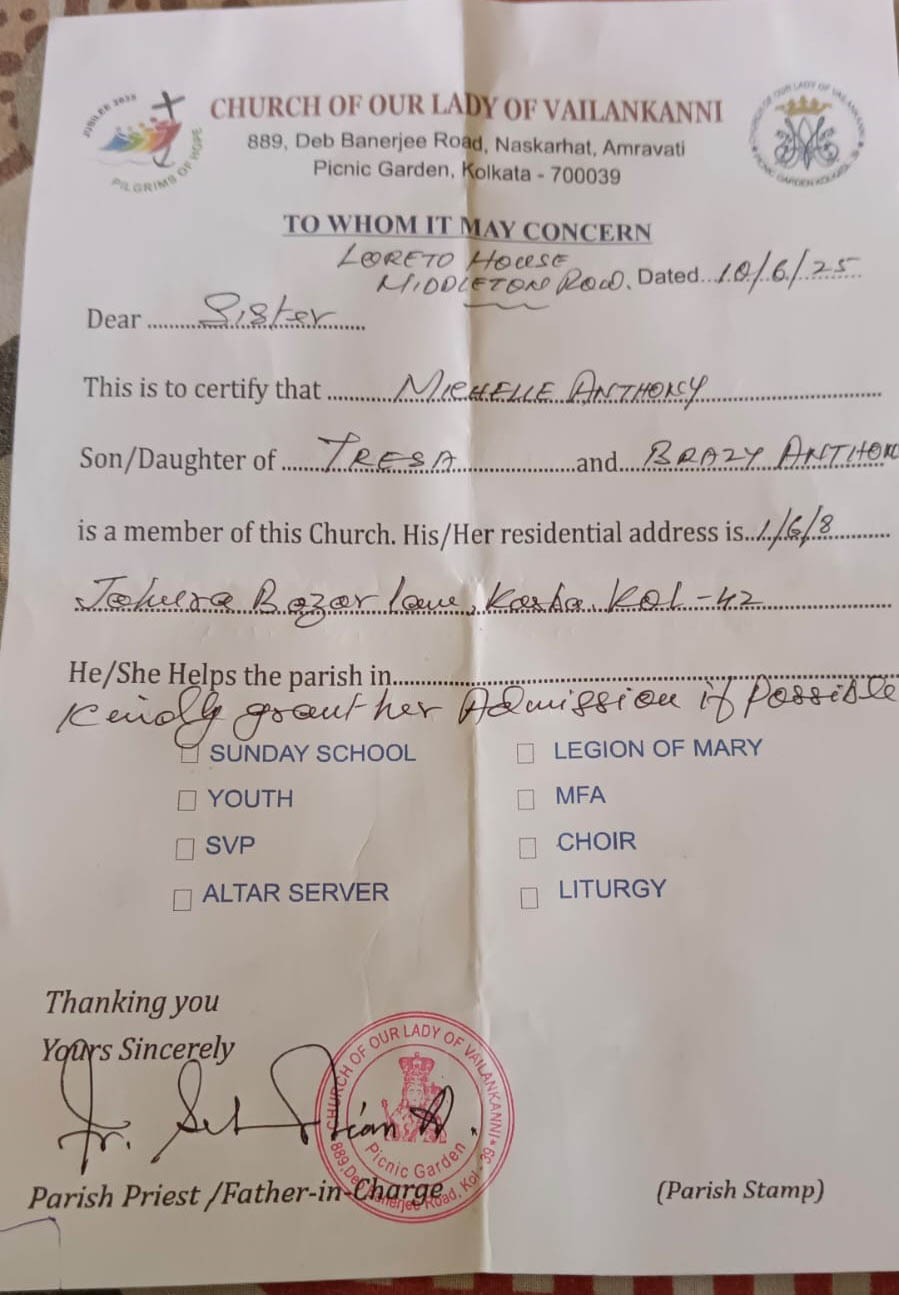 JUBILEE 2025
PILGRIMS OF HOPE
CHURCH OF OUR LADY OF VAILANKANNI
889, Deb Banerjee Road, Naskarhat, Amravati
Picnic Garden, Kolkata - 700039
CHURCH OF OUR LADY OF VAILANKANNI
PICNIC GARDEN KOLKATA - 39
TO WHOM IT MAY CONCERN
LORETO HOUSE
MIDDLETON ROW. Dated 10/6/25
Dear Sister
This is to certify that MICHELLE ANTHONY
Son/Daughter of TRESA and BRAZY ANTHON
is a member of this Church. His/Her residential address is 1/6/8
Bazar lane, Kasba, KOL-42
He/She Helps the parish in
Kindly grant her Admission if Possible
SUNDAY SCHOOL
LEGION OF MARY
YOUTH
MFA
SVP
CHOIR
ALTAR SERVER
LITURGY
Thanking you
Yours Sincerely
Fr.
CHURCH OF OUR LADY OF VAILANKANNI
Picnic Garden
889, Deb Banerjee Road, Kol - 39
Parish Priest /Father-in-Charge
(Parish Stamp)